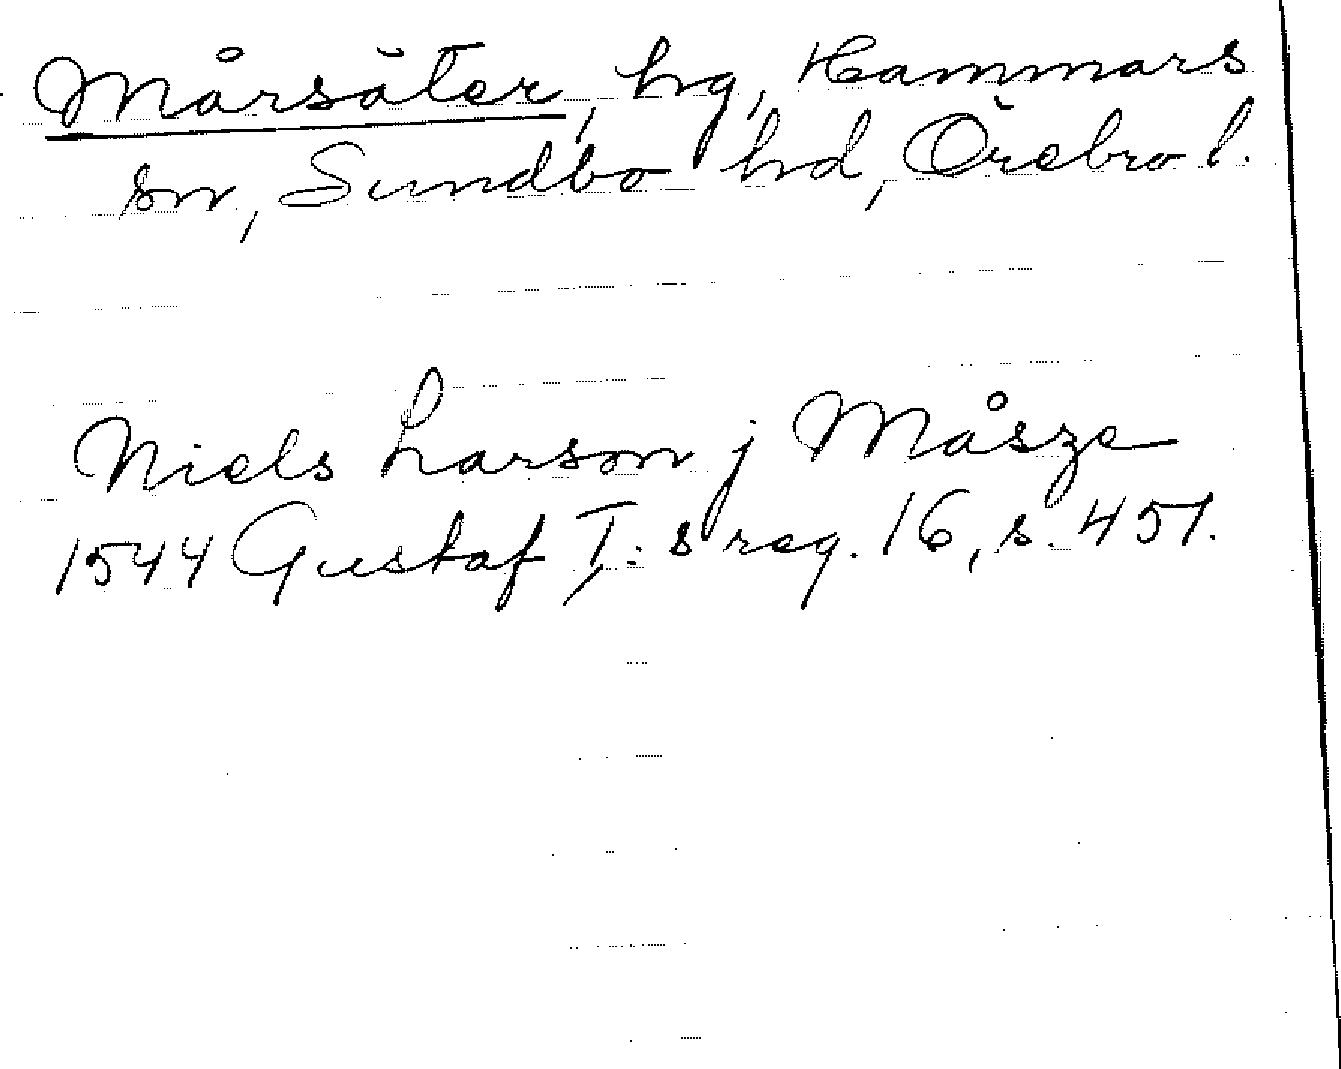 Mårsäter, hg, Hammars
sn, Sundbo hd, Örebro l.
Niels Larson j Måsze
1544 Gustaf I:s reg. 16, s. 451.